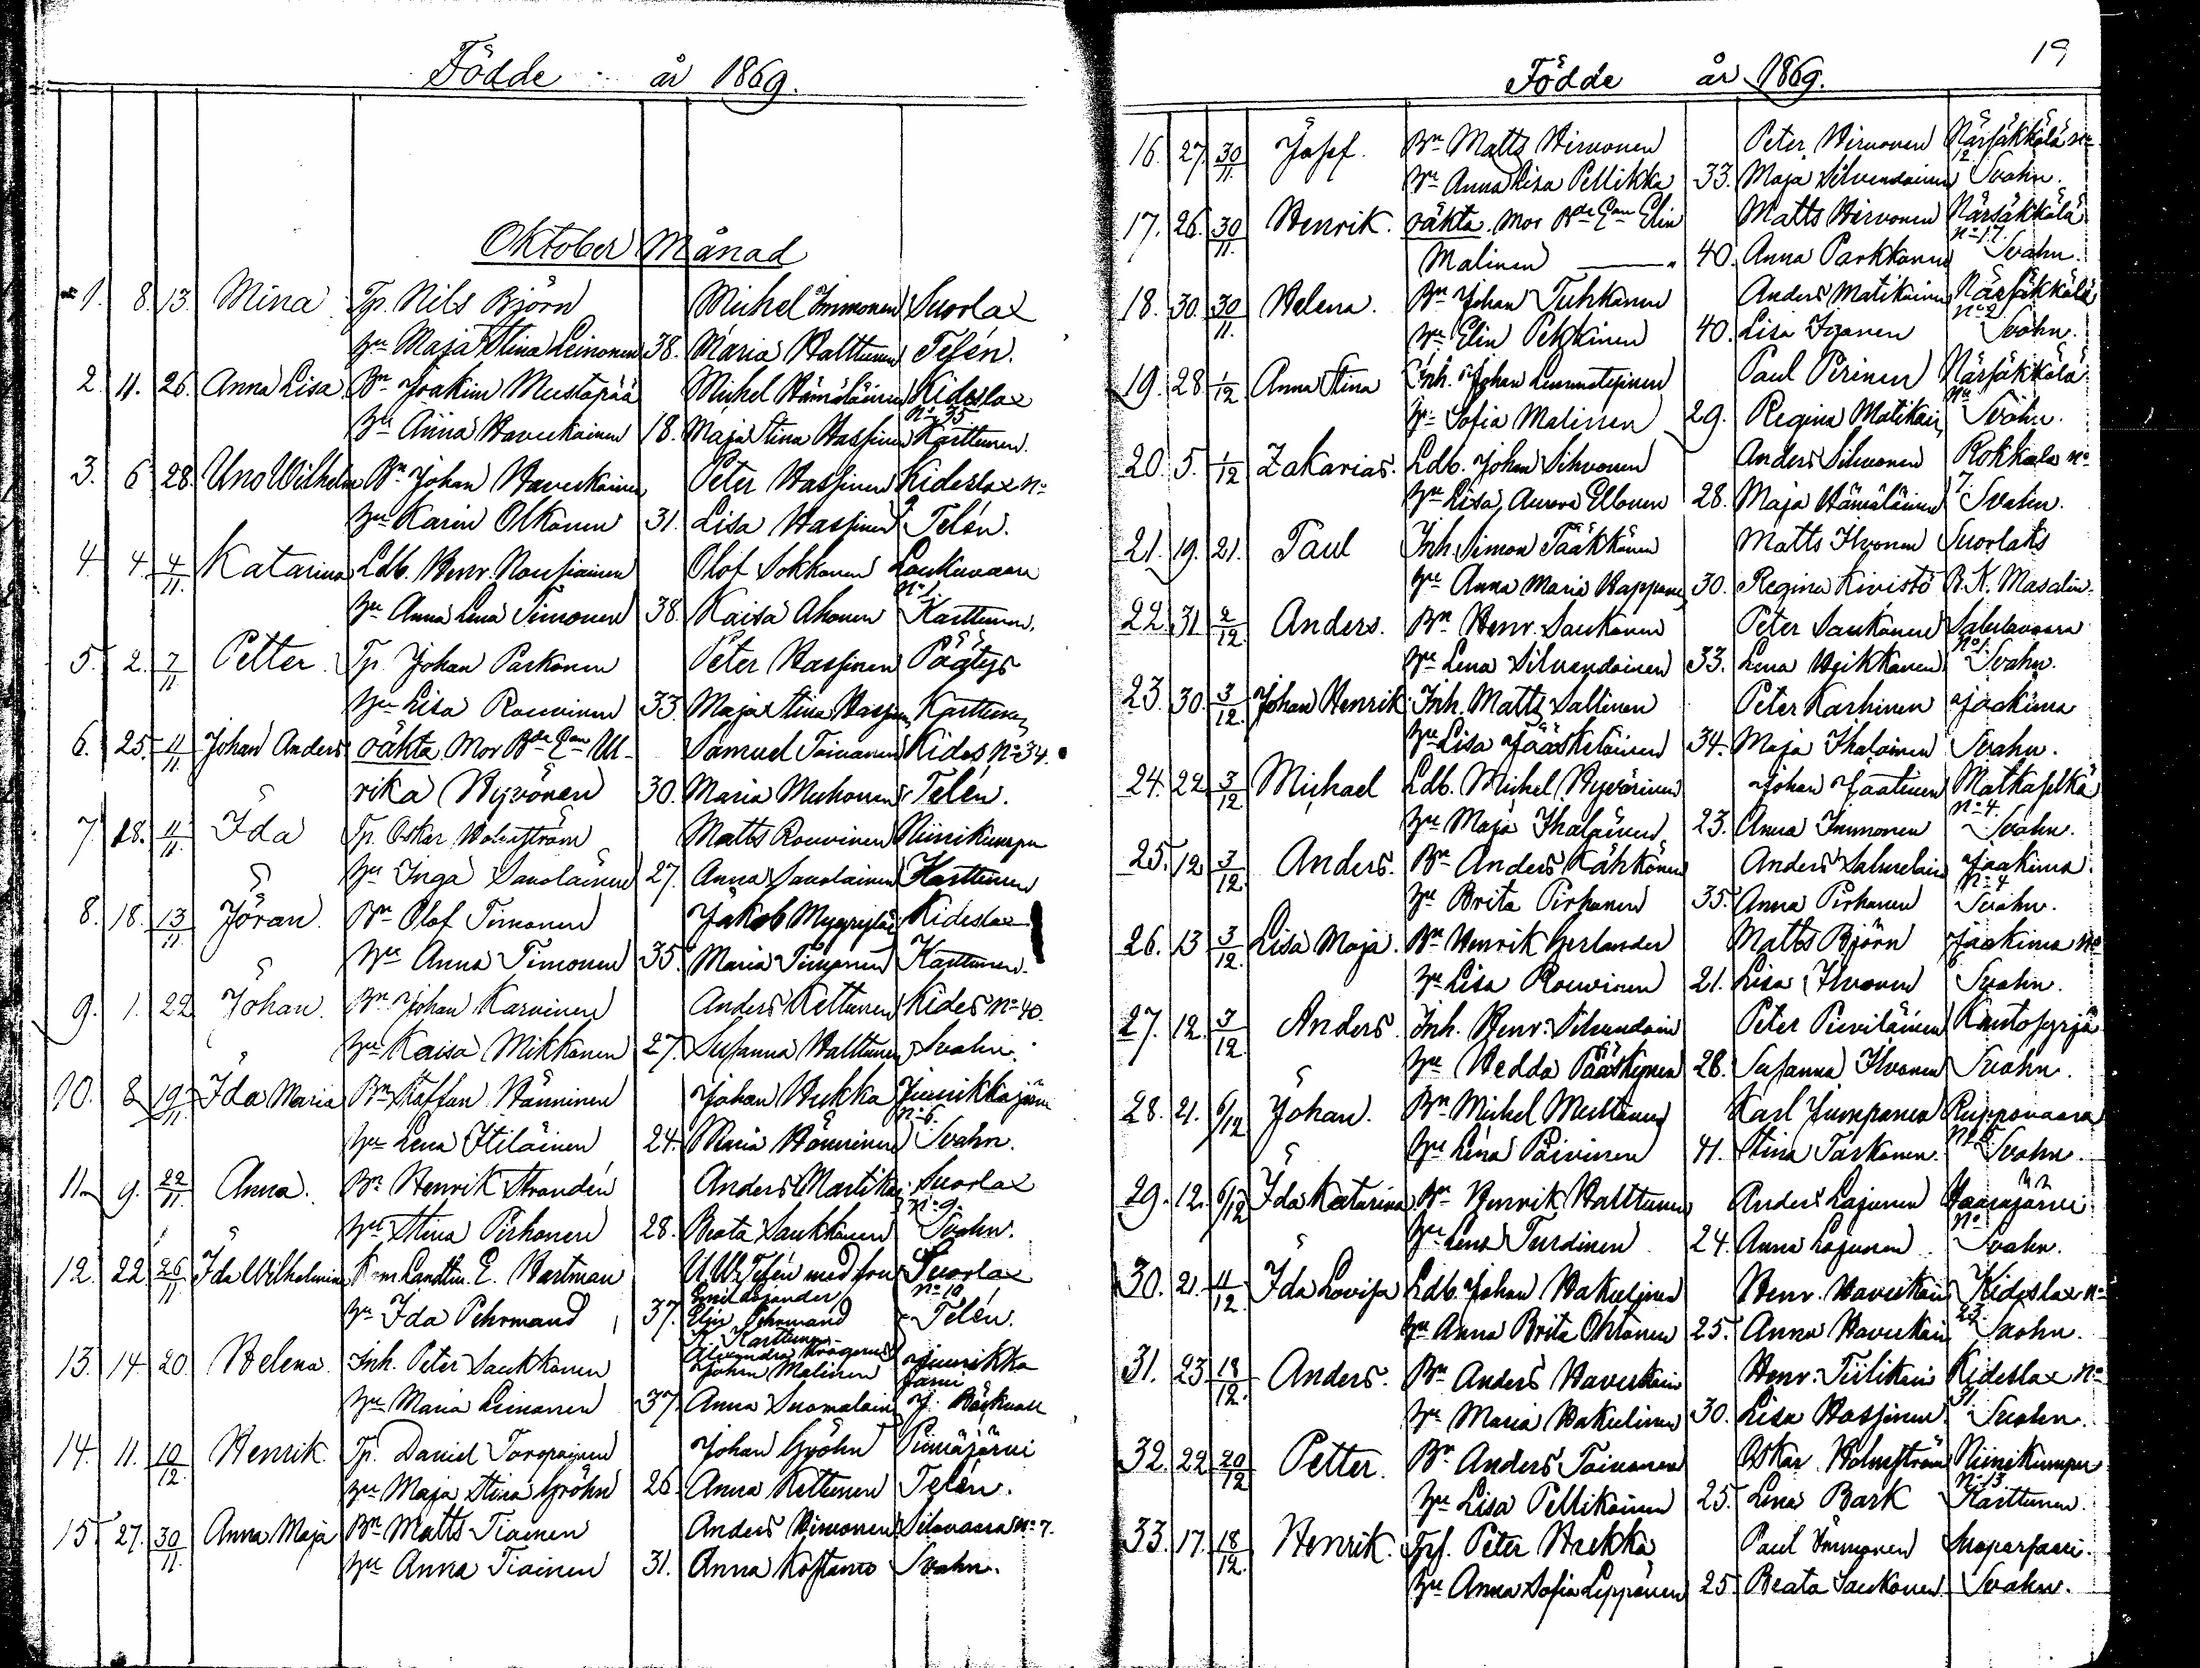 Födde år 1869.
Oktober Månad
1. 8. 13. Mina Tp. Nils Björn Michel Immonen Suorlax
hu Maja Stina Leinonen 38. Maria Halttunen Telén.
2. 11. 26. Anna Lisa Bn Joakim Mustapää Michel Hämäläinen Kideslax
No 35
hu Anna Havukainen 18. Maja Stina Hassinen Karttunen.
3. 6 28. Uno Wilhelm Bn Johan Havukainen Peter Hassinen Kideslax No
hu Karin Olkonen 31. Lisa Hassinen Telén.
4. 4 4/11. Katarina Ldb. Henr. Nousiainen Olof Sokkanen
No 1.
hu Anna Lena Timonen 38. Kaisa Ahonen Karttunen.
5. 2. 7/11 Petter. Tp. Johan Parkonen Peter Hassinen
hu Lisa Rouvinen 33. Maja Stina Karttunen
6. 25. 11/11 Johan Anders oäkta Mor Ul- Samuel Toivanen Kides No 34.
rika Hyvönen 30. Maria Muhonen Telén.
7. 18. 11/11 Ida Tp. Oskar Holmström Matts Rouvinen Niinikumpu
hu Inga Savolainen 27. Anna Savolainen Karttunen
8. 18. 13/11 Jöran. Bn Olof Timonen Jakob Kideslax
hu Anna Timonen 35. Maria Timonen Karttunen.
9. 1. 22 Johan. Bn Johan Karvinen Anders Kettunen Kides No 40.
hu Kaisa Mikkonen 27. Susanna Halttunen Svahn.
10. 8 19/11 Ida Maria Bn Staffan Hänninen Johan Hukka Juurikkajärvi
No 6.
hu Lena Itiläinen 24. Maria Hänninen Svahn.
11. 9. 22/11 Anna. Bn Henrik Strandén Anders Martikai Suorlax
No 9.
hu Stina Pirhonen 28. Beata Saukkonen Svahn.
12. 22 26/11 Ida Wilhelmina E. Hartman Telén med fru Suorlax
No 10
hu Ida Pehrmand 37. Pehrmand Telén.
K. Karttunen
Alexandra
13. 14. 20. Helena Inh. Peter Saukkonen Johan Malinen Juurikka
järvi
hu Maria Leinonen 37. Anna Suomalain J. Bäckvall
14. 11. 10/12 Henrik. Tp. Daniel Toropainen Johan Gröhn Piimäjärvi
hu Maja Stina Gröhn 26. Anna Kettunen Telén.
15. 27. 30/11. Anna Maja Bn Matts Tiainen Anders Hirvonen Silovaara No 7.
hu Anna Tiainen 31. Anna Kostamo Svahn.
19
Födde år 1869.
16. 27 30/11. Josef. Bn Matts Hirvonen Peter Hirvonen Närsäkkälä No
12.
hu Anna Lisa Pellikka 33. Maja Silvendoinen Svahn.
17. 26. 30/11. Henrik. oäkta. Mor Elin Matts Hirvonen Närsäkkälä
No 17.
Malinen 40. Anna Parkkonen Svahn.
18. 30. 30/11. Helena. Bn Johan Tuhkanen Anders Matikainen Närsäkkälä
No 2
hu Elin Pekkinen 40. Lisa Ikonen Svahn.
19. 28 1/12 Anna Stina Inh. Johan Paul Pirinen Närsäkkälä
No
hu Sofia Malinen 29. Regina Matikain Svahn.
20. 5. 1/12 Zakarias. Ldb. Johan Sihvonen Anders Sihvonen Rokkala No
7.
hu Lisa Aurora Ellonen 28. Maja Hämäläinen Svahn.
21. 19. 21. Paul Inh. Simon Pääkkönen Matts Ilvonen Suorlaks
hu Anna Maria Happonen 30. Regina Kivistö B. K. Masalin.
22. 31 2/12 Anders. Bn Henr. Saukonen Peter Saukonen
No
hu Lena Silvendoinen 33. Lena Heikkanen Svahn.
23. 30. 3/12. Johan Henrik Inh. Matts Sallinen Peter Karhinen Jaakima
hu Lisa Jääskeläinen 34. Maja Ihalainen Svahn.
24. 22 3/12 Michael Ldb. Michel Hyvärinen Johan Jaatinen Matkaselkä
No 4.
hu Maja Ihalainen 23. Anna Immonen Svahn.
25. 12 3/12. Anders. Bn Anders Kähkönen Anders Jaakima
No 4
hu Brita Pirhonen 35. Anna Pirhonen Svahn.
26. 13 3/12. Lisa Maja. Bn Henrik Gerlander Matts Björn Jaakima No
6
hu Lisa Rouvinen 21. Lisa Ilvonen Svahn.
27. 12. 3/12. Anders Inh. Henr. Silvendoin Peter Puvilainen Kantosyrjä
hu Hedda Pääskynen 28. Susanna Ilvonen Svahn.
28. 21. 6/12 Johan. Bn Michel Multanen Karl Jumpanen Ruppovaara
hu Lena Päivinen 41. Stina Tarkonen Svahn.
29. 12. 6/12 Ida Katarina Bn Henrik Halttunen Anders Lajunen Haarajärvi
No
hu Lena Turdinen 24. Anna Lajunen Svahn.
30. 21. 11/12 Ida Lovisa Ldb. Johan Hakulinen Henr. Havukain Kideslax No
23.
hu Anna Brita Ohtonen 25. Anna Havukain Svahn.
31. 23 18/12. Anders. Bn Anders Havukain Henr. Tiilikain Kideslax No
31.
hu Maria Hakulinen 30. Lisa Hassinen Svahn.
32. 22 20/12 Petter. Bn Anders Toivanen Oskar Holmström Niinikumpu
No 13
hu Lisa Pellikainen 25. Lena Bark Karttunen.
33. 17. 18/12. Henrik. Peter Hukka Paul Immonen
hu Anna Sofia Leppänen 25 Beata Saukonen Svahn.